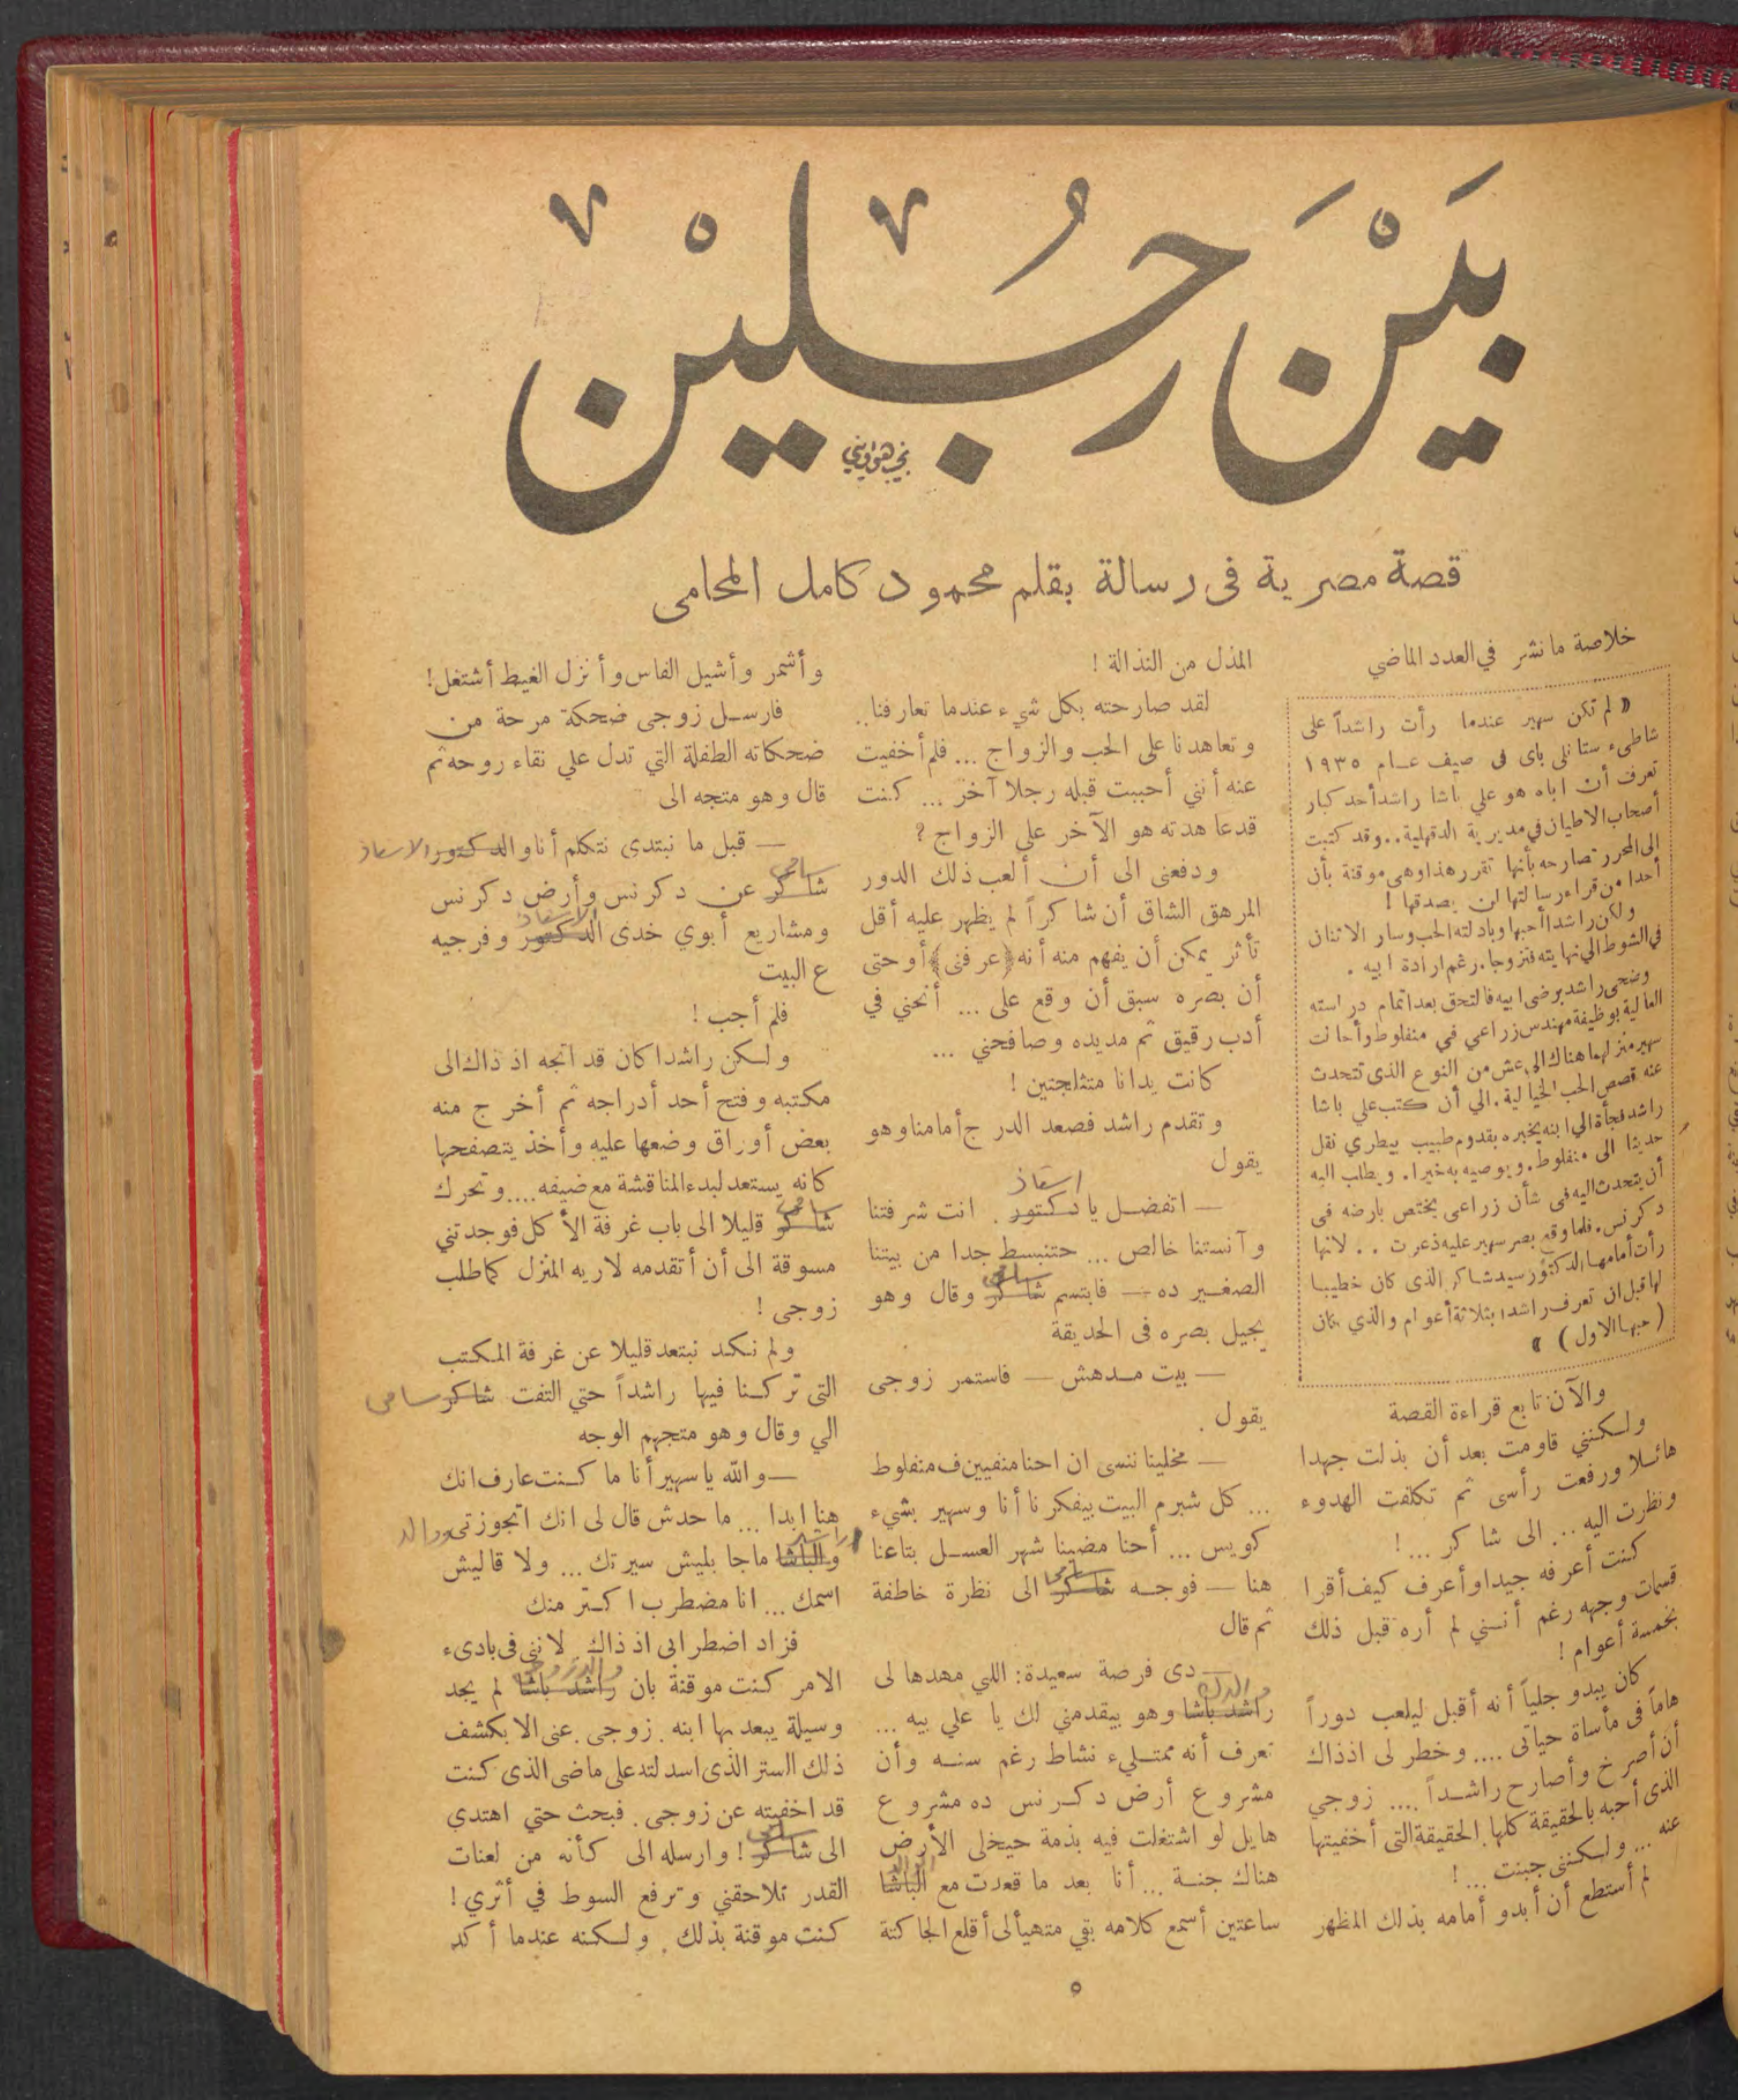 بَيْنَ رَجُلَيْنْ
نجيب هواويني
قصة مصرية فى رسالة بقلم محمود كامل المحامى
خلاصة ما نشر في العدد الماضي
« لم تكن سهير عندما رأت راشداً على
شاطىء ستانلى باى فى صيف عام ١٩٣٥
تعرف أن اباه هو علي باشا راشد أحد كبار
أصحاب الاطيان في مديرية الدقهلية .. وقد كتبت
الى المحرر تصارحه بأنها تقرر هذا وهى موقنة بأن
أحدا من قراء رسالتها لن يصدقها !
ولكن راشدا أحبها وبادلته الحب وسار الاثنان
في الشوط الي نهايته فتزوجا . رغم ارادة ابيه .
وضحى راشد برضى ابيه فالتحق بعد اتمام دراسته
العالية بوظيفة مهندس زراعي في منفلوط وأحالت
سهير منزلهما هناك الى عش من النوع الذى تتحدث
عنه قصص الحب الخيالية . الي أن كتب علي باشا
راشد فجأة الي ابنه يخبره بقدوم طبيب بيطري نقل
حديثا الى منفلوط . ويوصيه به خيرا . ويطلب اليه
أن يتحدث اليه في شأن زراعى يختص بارضه فى
دكرنس . فلما وقع بصر سهير عليه ذعرت .. لانها
رأت أمامها الدكتور سيد شاكر الذى كان خطيبا
لها قبل ان تعرف راشدا بثلاثة أعوام والذي كان
( حبها الاول ) »
والآن تابع قراءة القصة
ولكننى قاومت بعد أن بذلت جهدا
هائلا ورفعت رأسى ثم تكلفت الهدوء
ونظرت اليه .. الى شاكر ... !
كنت أعرفه جيدا وأعرف كيف أقرا
قسمات وجهه رغم أننى لم أره قبل ذلك
بخمسة أعوام !
كان يبدو جلياً أنه أقبل ليلعب دوراً
هاماً فى مأساة حياتى .... وخطر لى اذ ذاك
أن أصرخ وأصارح راشداً .... زوجي
الذى أحبه بالحقيقة كلها . الحقيقة التى أخفيتها
عنه ... ولكننى جبنت ... !
لم أستطع أن أبدو أمامه بذلك المظهر
المذل من النذالة !
لقد صارحته بكل شيء عندما تعارفنا ..
وتعاهدنا على الحب والزواج ... فلم أخفيت
عنه أنني أحببت قبله رجلا آخر ... كنت
قد عاهدته هو الآخر على الزواج ؟
ودفعنى الى أن ألعب ذلك الدور
المرهق الشاق أن شاكراً لم يظهر عليه أقل
تأثر يمكن أن يفهم منه أنه (عرفنى) أو حتى
أن بصره سبق أن وقع على ... أنحني في
أدب رقيق ثم مد يده وصافحني ...
كانت يدانا متثلجتين !
وتقدم راشد فصعد الدرج أمامنا وهو
يقول
استاذ
— اتفضل يا دكتور . انت شرفتنا
وآنستنا خالص ... حتنبسط جدا من بيتنا
سامى
الصغير ده — فابتسم شاكر وقال وهو
يجيل بصره فى الحديقة
— بيت مدهش — فاستمر زوجى
يقول .
— مخلينا ننسى ان احنا منفيين ف منفلوط
... كل شبر م البيت بيفكرنا أنا وسهير بشيء
كويس ... أحنا مضينا شهر العسل بتاعنا
سامى
هنا — فوجه شاكر الى نظرة خاطفة
ثم قال
— دى فرصة سعيدة : اللي مهدها لى
والدك
راشد باشا وهو بيقدمنى لك يا علي بيه ...
تعرف أنه ممتليء نشاط رغم سنه وأن
مشروع أرض دكرنس ده مشروع
هايل لو اشتغلت فيه بذمة حيخلى الأرض
هناك جنة ... أنا بعد ما قعدت مع الباشا
ساعتين أسمع كلامه بقي متهيألى أقلع الجاكتة
وأشمر وأشيل الفاس وأنزل الغيط أشتغل !
فارسل زوجى ضحكة مرحة من
ضحكاته الطفلة التي تدل علي نقاء روحه ثم
قال وهو متجه الى
— قبل ما نبتدى نتكلم أنا والدكتور الاستاذ
سامى
شاكر عن دكرنس وأرض دكرنس
الاستاذ
ومشاريع أبوي خدى الدكتور وفرجيه
ع البيت
فلم أجب !
ولكن راشدا كان قد اتجه اذ ذاك الى
مكتبه وفتح أحد أدراجه ثم أخرج منه
بعض أوراق وضعها عليه وأخذ يتصفحها
كانه يستعد لبدء المناقشة مع ضيفه .... وتحرك
سامى
شاكر قليلا الى باب غرفة الأكل فوجدتني
مسوقة الى أن أتقدمه لاريه المنزل كما طلب
زوجى !
ولم نكد نبتعد قليلا عن غرفة المكتب
التى تركنا فيها راشداً حتي التفت شاكر سامى
الي وقال وهو متجهم الوجه
— والله يا سهير أنا ما كنت عارف انك
هنا ابدا ... ما حدش قال لى انك اتجوزتى ووالد
راشد
والباشا ما جابليش سيرتك ... ولا قاليش
اسمك ... انا مضطرب اكتر منك
فزاد اضطرابى اذ ذاك . لاننى فى بادىء
والد زوجى
الامر كنت موقنة بان راشد باشا لم يجد
وسيلة يبعد بها ابنه . زوجى . عنى الا بكشف
ذلك الستر الذى اسدلته على ماضى الذى كنت
قد اخفيته عن زوجى . فبحث حتي اهتدى
سامى
الى شاكر ! وارسله الى كأنه من لعنات
القدر تلاحقني وترفع السوط في أثري !
كنت موقنة بذلك . ولكنه عندما أكد
٥